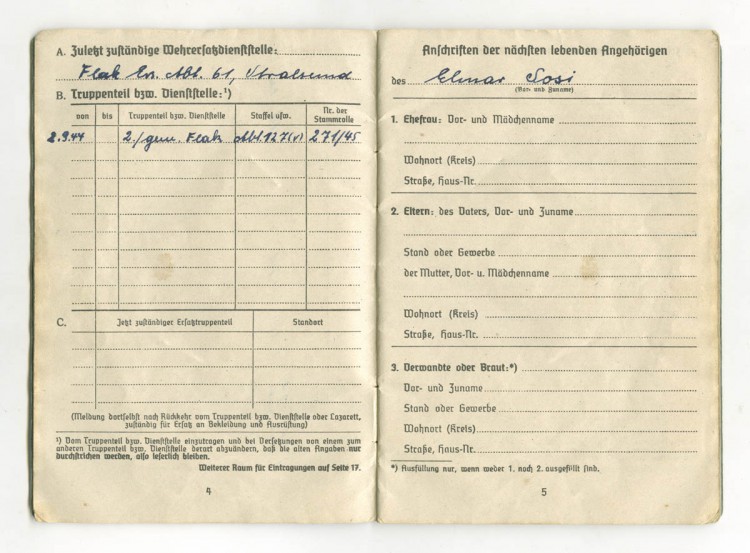 A. Zuletzt zuständige Wehrersatzdienststelle:
Flak Ers. Abt. 61, Stralsund
B. Truppenteil bzw. Dienststelle:¹)
von bis Truppenteil bzw. Dienststelle Staffel usw. Nr. der Stammrolle
2.9.44 2./gem. Flak Abt. 127(v) 271/45
C. Jetzt zuständiger Ersatztruppenteil Standort
(Meldung dortselbst nach Rückkehr vom Truppenteil bzw. Dienststelle oder Lazarett,
zuständig für Ersatz an Bekleidung und Ausrüstung)
¹) Vom Truppenteil bzw. Dienststelle einzutragen und bei Versetzungen von einem zum
anderen Truppenteil bzw. Dienststelle derart abzuändern, daß die alten Angaben nur
durchstrichen werden, also leserlich bleiben.
Weiterer Raum für Eintragungen auf Seite 17.
4
Anschriften der nächsten lebenden Angehörigen
des Elmar Sosi
(Vor- und Zuname)
1. Ehefrau: Vor- und Mädchenname
Wohnort (Kreis)
Straße, Haus-Nr.
2. Eltern: des Vaters, Vor- und Zuname
Stand oder Gewerbe
der Mutter, Vor- u. Mädchenname
Wohnort (Kreis)
Straße, Haus-Nr.
3. Verwandte oder Braut:*)
Vor- und Zuname
Stand oder Gewerbe
Wohnort (Kreis)
Straße, Haus-Nr.
*) Ausfüllung nur, wenn weder 1. noch 2. ausgefüllt sind.
5